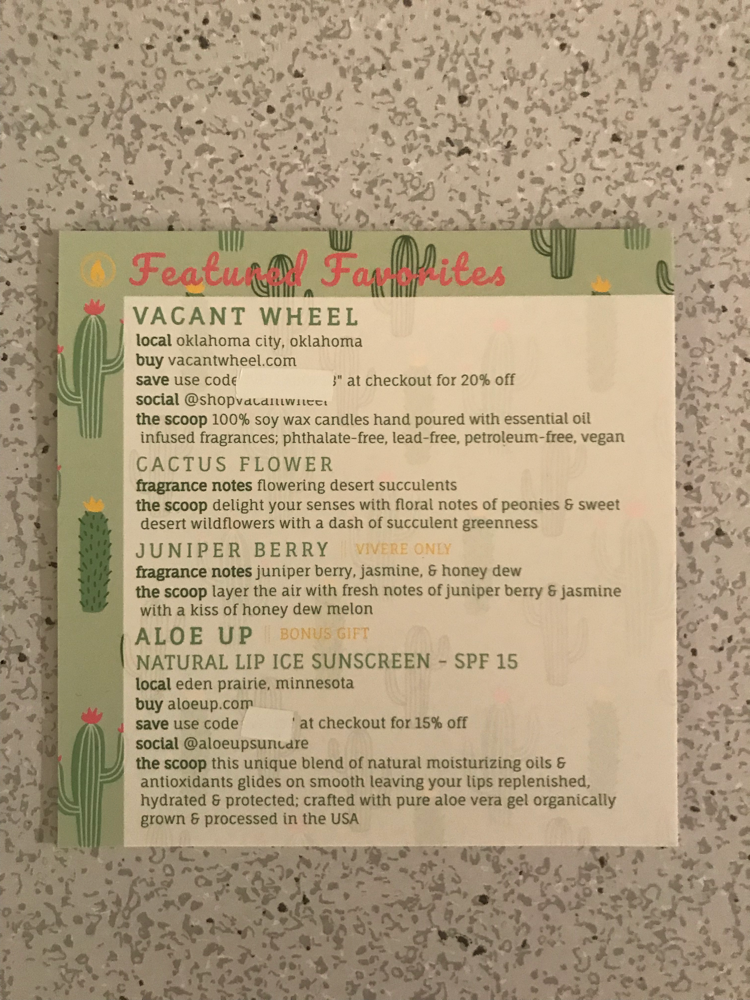 Featured Favorites
VACANT WHEEL
local oklahoma city, oklahoma
buy vacantwheel.com
save use code " at checkout for 20% off
social @shopvacantwheel
the scoop 100% soy wax candles hand poured with essential oil
infused fragrances; phthalate-free, lead-free, petroleum-free, vegan
CACTUS FLOWER
fragrance notes flowering desert succulents
the scoop delight your senses with floral notes of peonies & sweet
desert wildflowers with a dash of succulent greenness
JUNIPER BERRY || VIVERE ONLY
fragrance notes juniper berry, jasmine, & honey dew
the scoop layer the air with fresh notes of juniper berry & jasmine
with a kiss of honey dew melon
ALOE UP || BONUS GIFT
NATURAL LIP ICE SUNSCREEN - SPF 15
local eden prairie, minnesota
buy aloeup.com
save use code " at checkout for 15% off
social @aloeupsuncare
the scoop this unique blend of natural moisturizing oils &
antioxidants glides on smooth leaving your lips replenished,
hydrated & protected; crafted with pure aloe vera gel organically
grown & processed in the USA